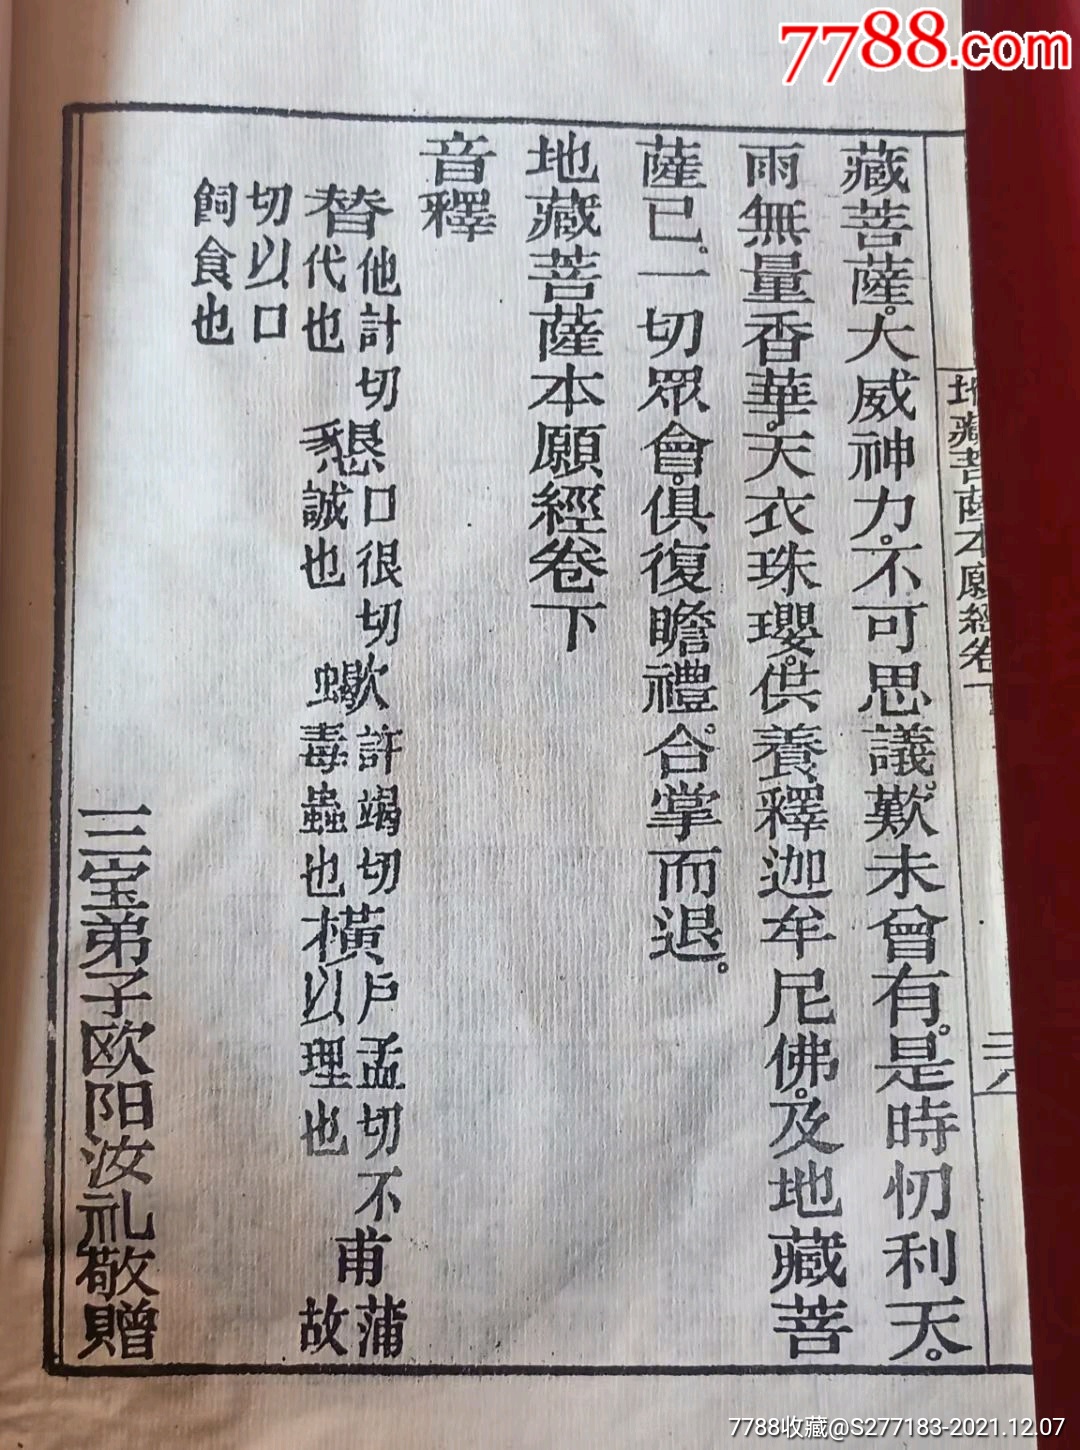 7788.com
地藏菩薩本願經卷下
三八
藏菩薩。大威神力。不可思議。歎未曾有。是時忉利天。
雨無量香華。天衣珠瓔。供養釋迦牟尼佛。及地藏菩
薩已。一切眾會。俱復瞻禮。合掌而退。
地藏菩薩本願經卷下
音釋
替他計切代也 懇口很切誠也 蠍許竭切毒蟲也 橫戶孟切不以理也 甫蒲故
切以口飼食也
三宝弟子欧阳汝礼敬贈
7788收藏@S277183-2021.12.07